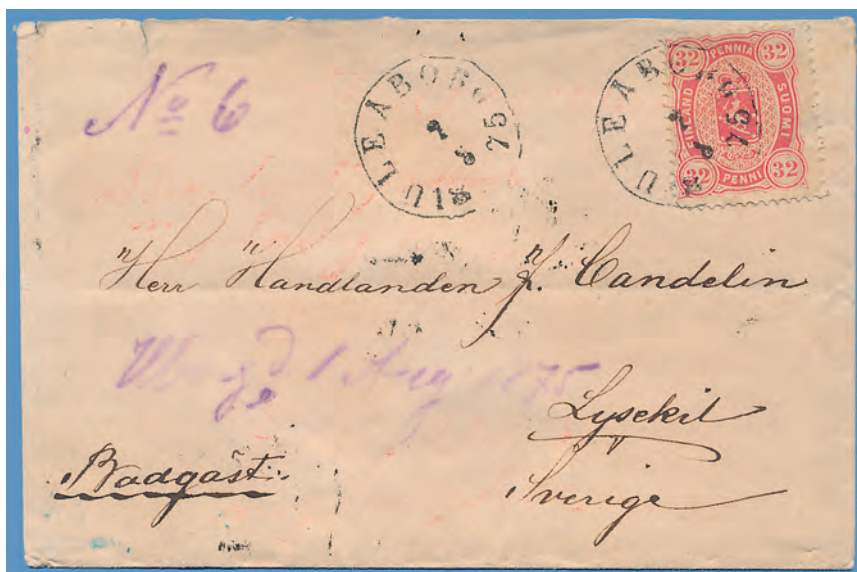 No 6
ULEÅBORG
18 75
ULEÅBORG
75
32 PENNIÄ 32
FINLAND
SUOMI
32 PENNI 32
Herr Handlanden Z. Candelin
1 Aug 1875
Lysekil
Badgäst
Sverige